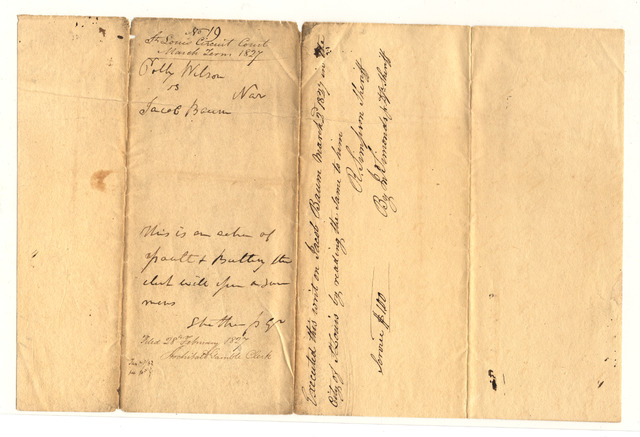 No 19
St Louis Circuit Court
March Term 1827
Polly Wilson
vs Nar
Jacob Baum
This is an action of
& Battery the
clerk will issue a sum
mons
Filed 28th February 1827
Archibald Gamble Clerk
Executed this writ on Jacob Baum March 2d 1827 in the
City of St Louis by reading the same to him
R Simpson Sheriff
By Simonds Jr D Sheriff
Service $1.00